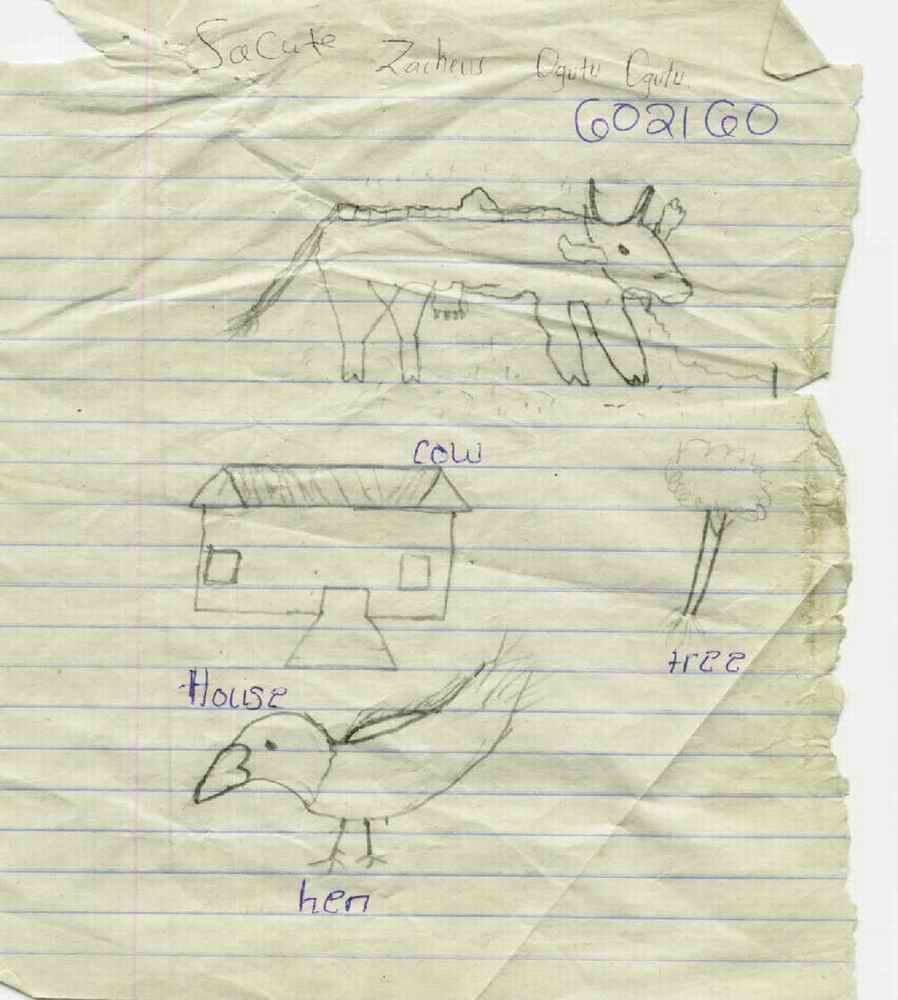 Sacute Zacheus Ogutu Ogutu.
602160
cow
tree
House
hen